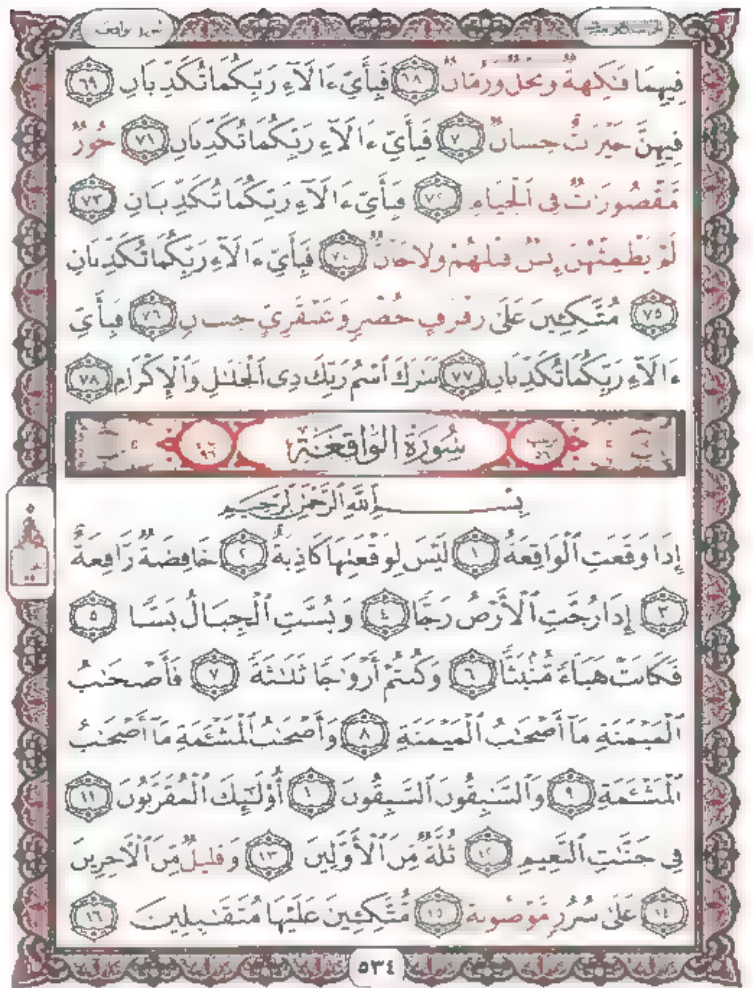 فِيهِمَا فَٰكِهَةٌ وَنَخْلٌ وَرُمَّانٌ ٦٨ فَبِأَيِّ ءَالَآءِ رَبِّكُمَا تُكَذِّبَانِ ٦٩
فِيهِنَّ خَيْرَٰتٌ حِسَانٌ ٧٠ فَبِأَيِّ ءَالَآءِ رَبِّكُمَا تُكَذِّبَانِ ٧١ حُورٌ
مَّقْصُورَٰتٌ فِى ٱلْخِيَامِ ٧٢ فَبِأَيِّ ءَالَآءِ رَبِّكُمَا تُكَذِّبَانِ ٧٣
لَمْ يَطْمِثْهُنَّ إِنسٌ قَبْلَهُمْ وَلَا جَآنٌّ ٧٤ فَبِأَيِّ ءَالَآءِ رَبِّكُمَا تُكَذِّبَانِ
٧٥ مُتَّكِـِٔينَ عَلَىٰ رَفْرَفٍ خُضْرٍ وَعَبْقَرِىٍّ حِسَانٍ ٧٦ فَبِأَيِّ
ءَالَآءِ رَبِّكُمَا تُكَذِّبَانِ ٧٧ تَبَٰرَكَ ٱسْمُ رَبِّكَ ذِى ٱلْجَلَٰلِ وَٱلْإِكْرَامِ ٧٨
سُورَةُ الوَاقِعَةِ
بِسْمِ ٱللَّهِ ٱلرَّحْمَٰنِ ٱلرَّحِيمِ
إِذَا وَقَعَتِ ٱلْوَاقِعَةُ ١ لَيْسَ لِوَقْعَتِهَا كَاذِبَةٌ ٢ خَافِضَةٌ رَّافِعَةٌ
٣ إِذَا رُجَّتِ ٱلْأَرْضُ رَجًّا ٤ وَبُسَّتِ ٱلْجِبَالُ بَسًّا ٥
فَكَانَتْ هَبَآءً مُّنۢبَثًّا ٦ وَكُنتُمْ أَزْوَٰجًا ثَلَٰثَةً ٧ فَأَصْحَٰبُ
ٱلْمَيْمَنَةِ مَآ أَصْحَٰبُ ٱلْمَيْمَنَةِ ٨ وَأَصْحَٰبُ ٱلْمَشْـَٔمَةِ مَآ أَصْحَٰبُ
ٱلْمَشْـَٔمَةِ ٩ وَٱلسَّٰبِقُونَ ٱلسَّٰبِقُونَ ١٠ أُو۟لَٰٓئِكَ ٱلْمُقَرَّبُونَ ١١
فِى جَنَّٰتِ ٱلنَّعِيمِ ١٢ ثُلَّةٌ مِّنَ ٱلْأَوَّلِينَ ١٣ وَقَلِيلٌ مِّنَ ٱلْـَٔاخِرِينَ
١٤ عَلَىٰ سُرُرٍ مَّوْضُونَةٍ ١٥ مُّتَّكِـِٔينَ عَلَيْهَا مُتَقَٰبِلِينَ ١٦
٥٣٤